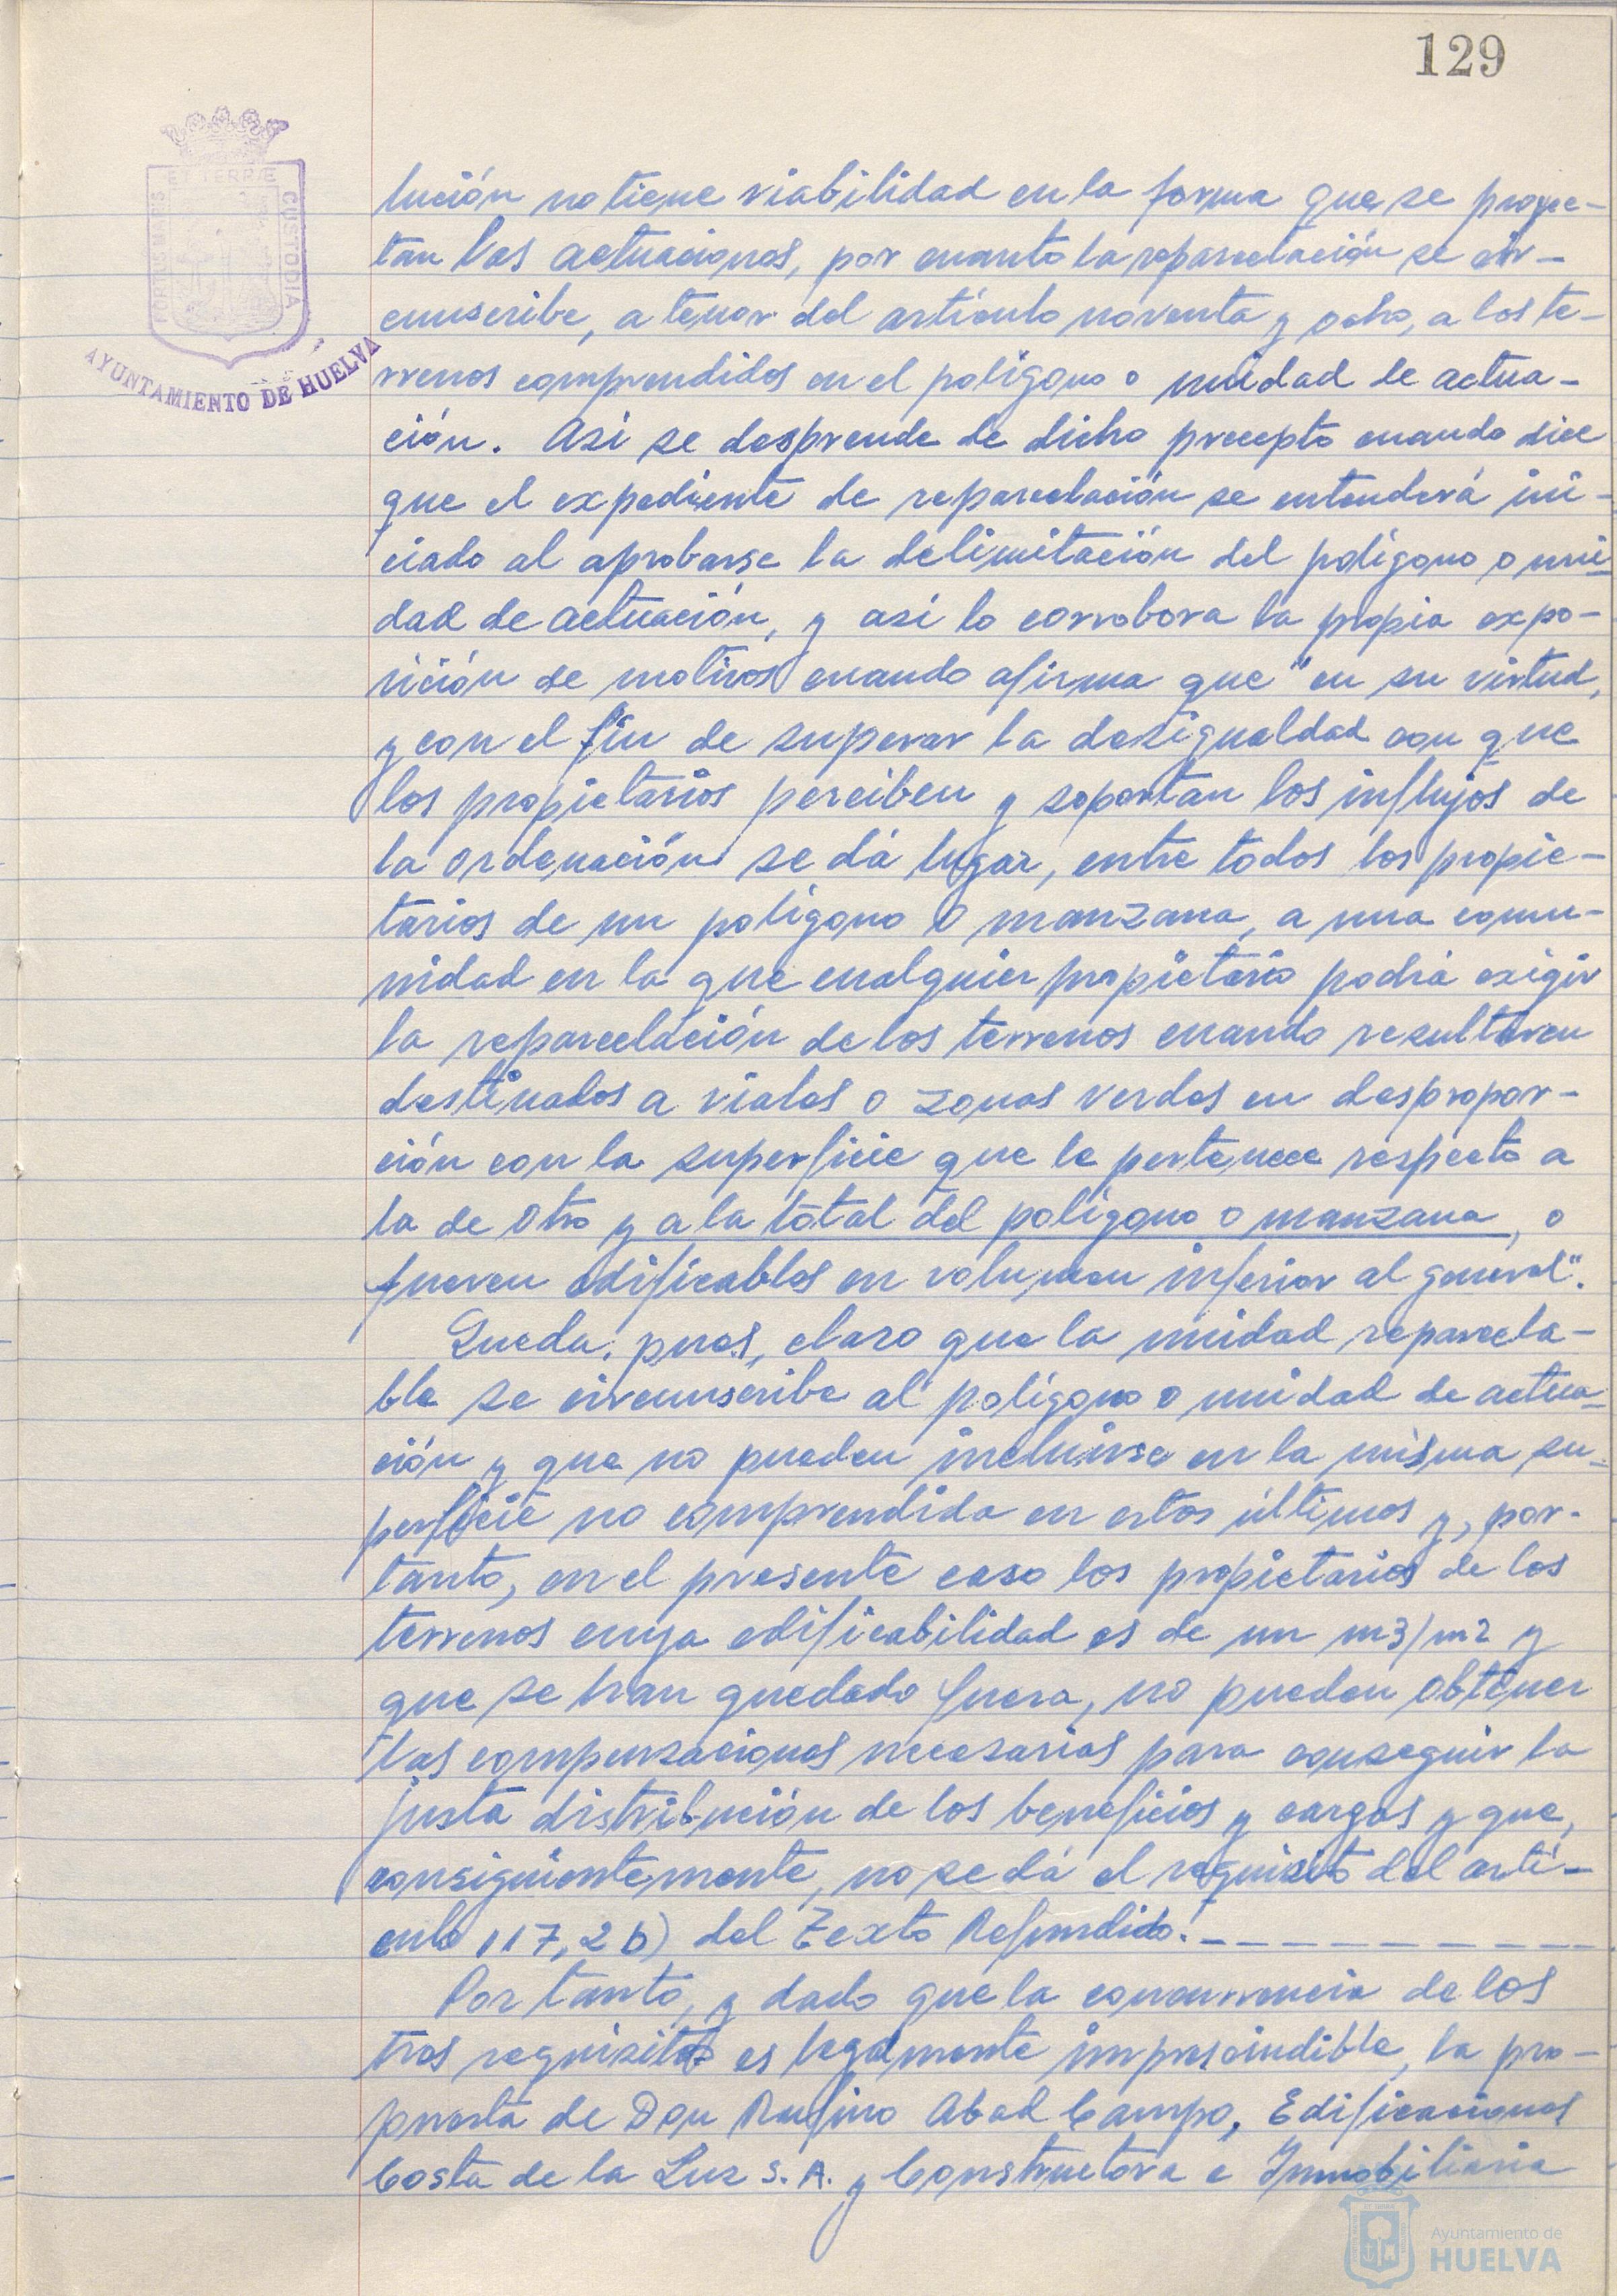 129
PORTUS MARIS
ET TERRÆ
CUSTODIA
AYUNTAMIENTO DE HUELVA
lución no tiene viabilidad en la forma que se proyec-
tan las actuaciones, por cuanto la reparcelación se cir-
cunscribe, a tenor del artículo noventa y ocho, a los te-
rrenos comprendidos en el polígono o unidad de actua-
ción. Así se desprende de dicho precepto cuando dice
que el expediente de reparcelación se entenderá ini-
ciado al aprobarse la delimitación del polígono o uni-
dad de actuación, y así lo corrobora la propia expo-
sición de motivos cuando afirma que "en su virtud,
y con el fin de superar la desigualdad con que
los propietarios perciben y soportan los influjos de
la ordenación se dá lugar, entre todos los propie-
tarios de un polígono o manzana, a una comu-
nidad en la que cualquier propietario podrá exigir
la reparcelación de los terrenos cuando resultaren
destinados a viales o zonas verdes en despropor-
ción con la superficie que le pertenece respecto a
la de otro y a la total del polígono o manzana, o
fueren edificables en volumen inferior al general".
Queda, pues, claro que la unidad reparcela-
ble se circunscribe al polígono o unidad de actua-
ción y que no pueden incluirse en la misma su-
perficie no comprendida en estos últimos y, por-
tanto, en el presente caso los propietarios de los
terrenos cuya edificabilidad es de un m3/m2 y
que se han quedado fuera, no pueden obtener
las compensaciones necesarias para conseguir la
justa distribución de los beneficios y cargas y que,
consiguientemente, no se dá el requisito del artí-
culo 117, 2 b) del Texto Refundido. - - - - - - - - -
Por tanto, y dado que la concurrencia de los
tres requisitos es legalmente imprescindible, la pro-
puesta de Don Rufino Abad Campo, Edificaciones
Costa de la Luz S.A. y Constructora e Inmobiliaria
Ayuntamiento de
HUELVA